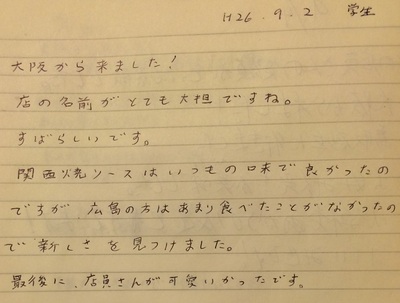 H26.9.2 学生
大阪から来ました!
店の名前がとても大担ですね。
すばらしいです。
関西焼ソースはいつもの口来で良かったの
ですが、広島の方はあまり食べたことがなかったの
で新しさを見つけました。
最後に、店員さんが可愛いかったです。